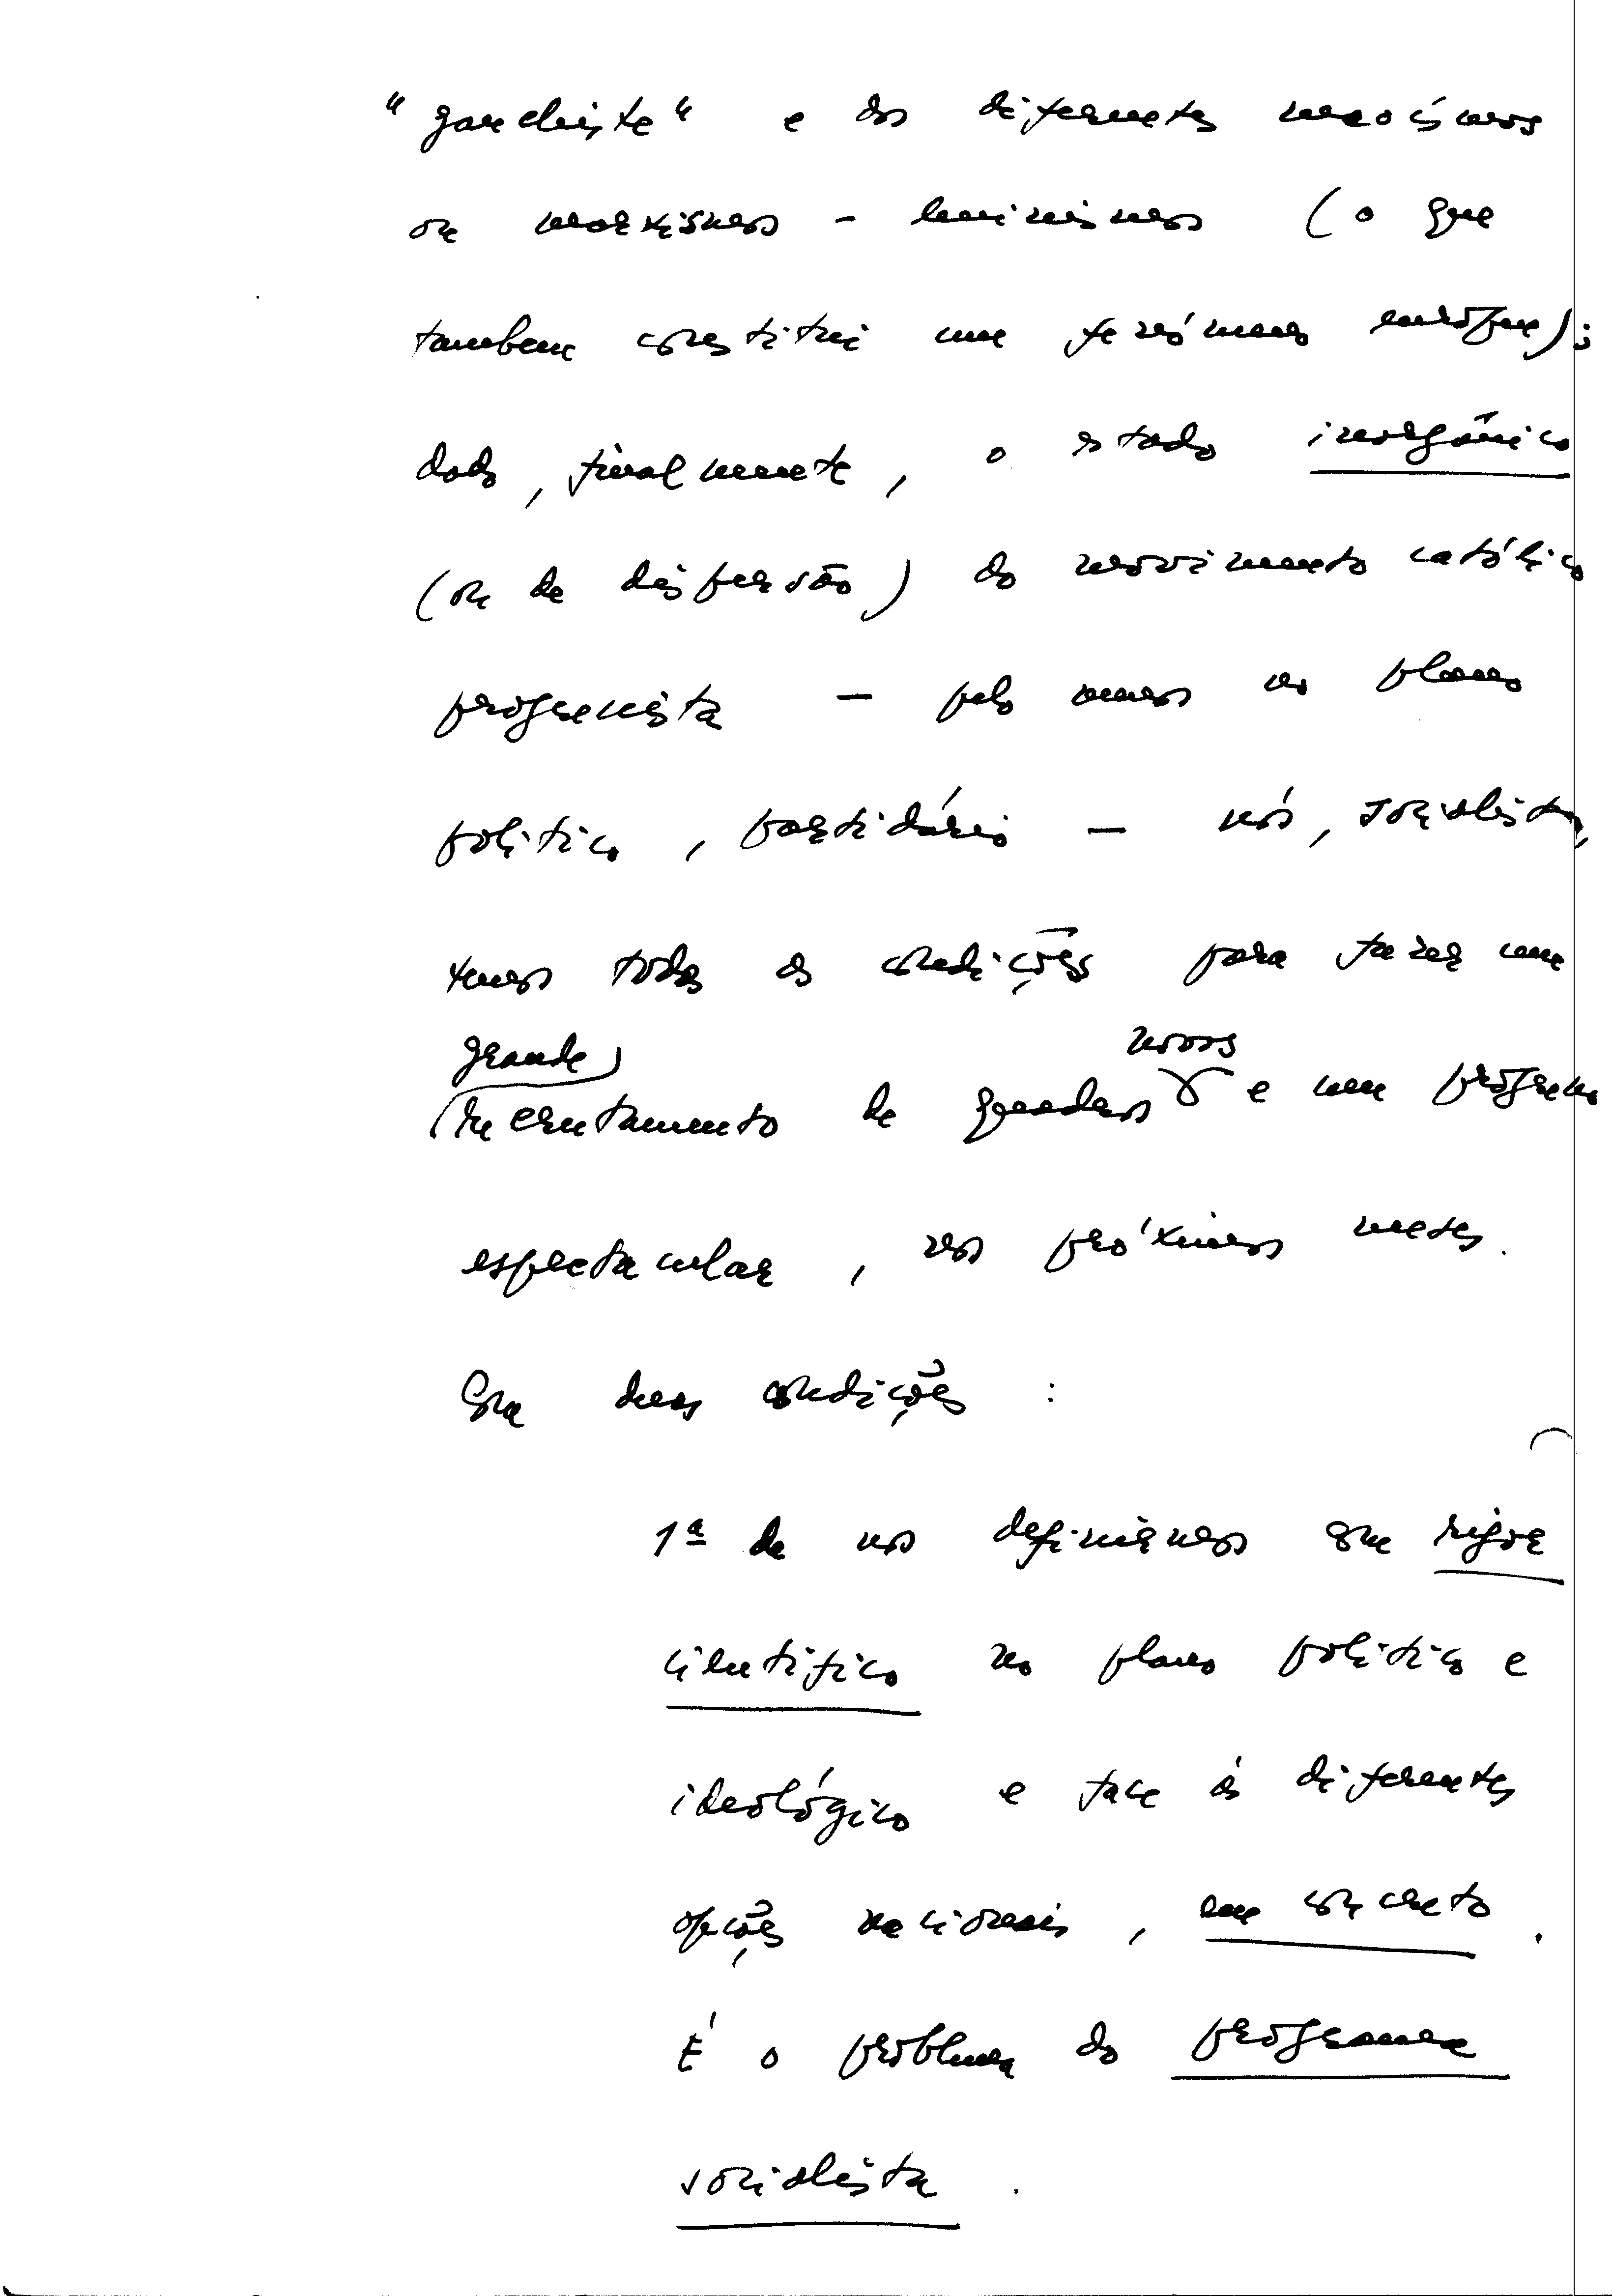 "gauchiste" e dos diferentes maoísmos
ou marxismos - leninismos (o que
tambem constitui um fenómeno europeu);
dado, finalmente, o estado inorgânico
(ou de dispersão) do movimento católico
progressista - pelo menos no plano
político, partidário - nós, socialistas,
temos todas as condições para fazer um
grande novos
recrutamento de quadros e um progresso
espectacular, nos próximos meses.
Com duas condições:
1ª de nos definirmos com rigor
científico no plano político e
ideológico e face às diferentes
opções nacionais, em concreto.
É o problema do programa
socialista.